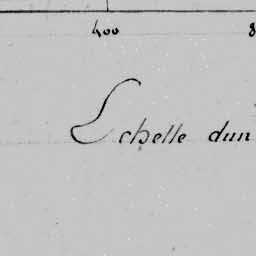 400 8
Echelle dun